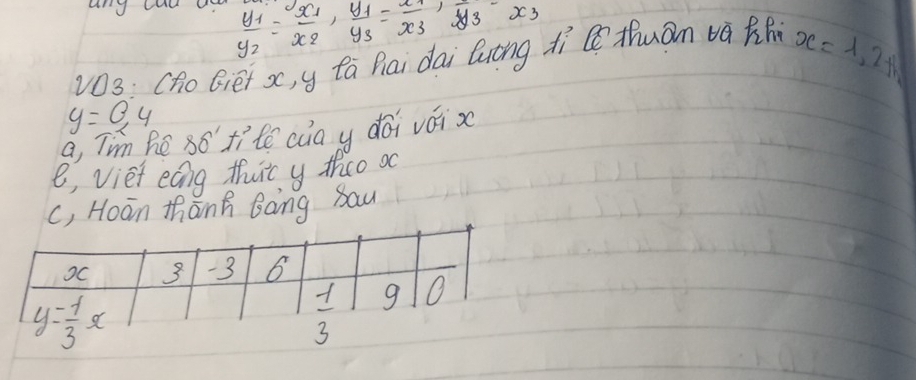 y1/y2 = x1/x2, y1/y3 = x1/x3, y3 x3
VD3: Cho biết x, y là hai đại lượng tỉ lệ thuận và khi x = 1,2 th
y = 0,4
a, Tìm hệ số tỉ lệ của y đối với x
b, Viết công thức y theo x
c, Hoàn thành bảng sau
x 3 -3 6
y = 1/3 x 1/3 9 0